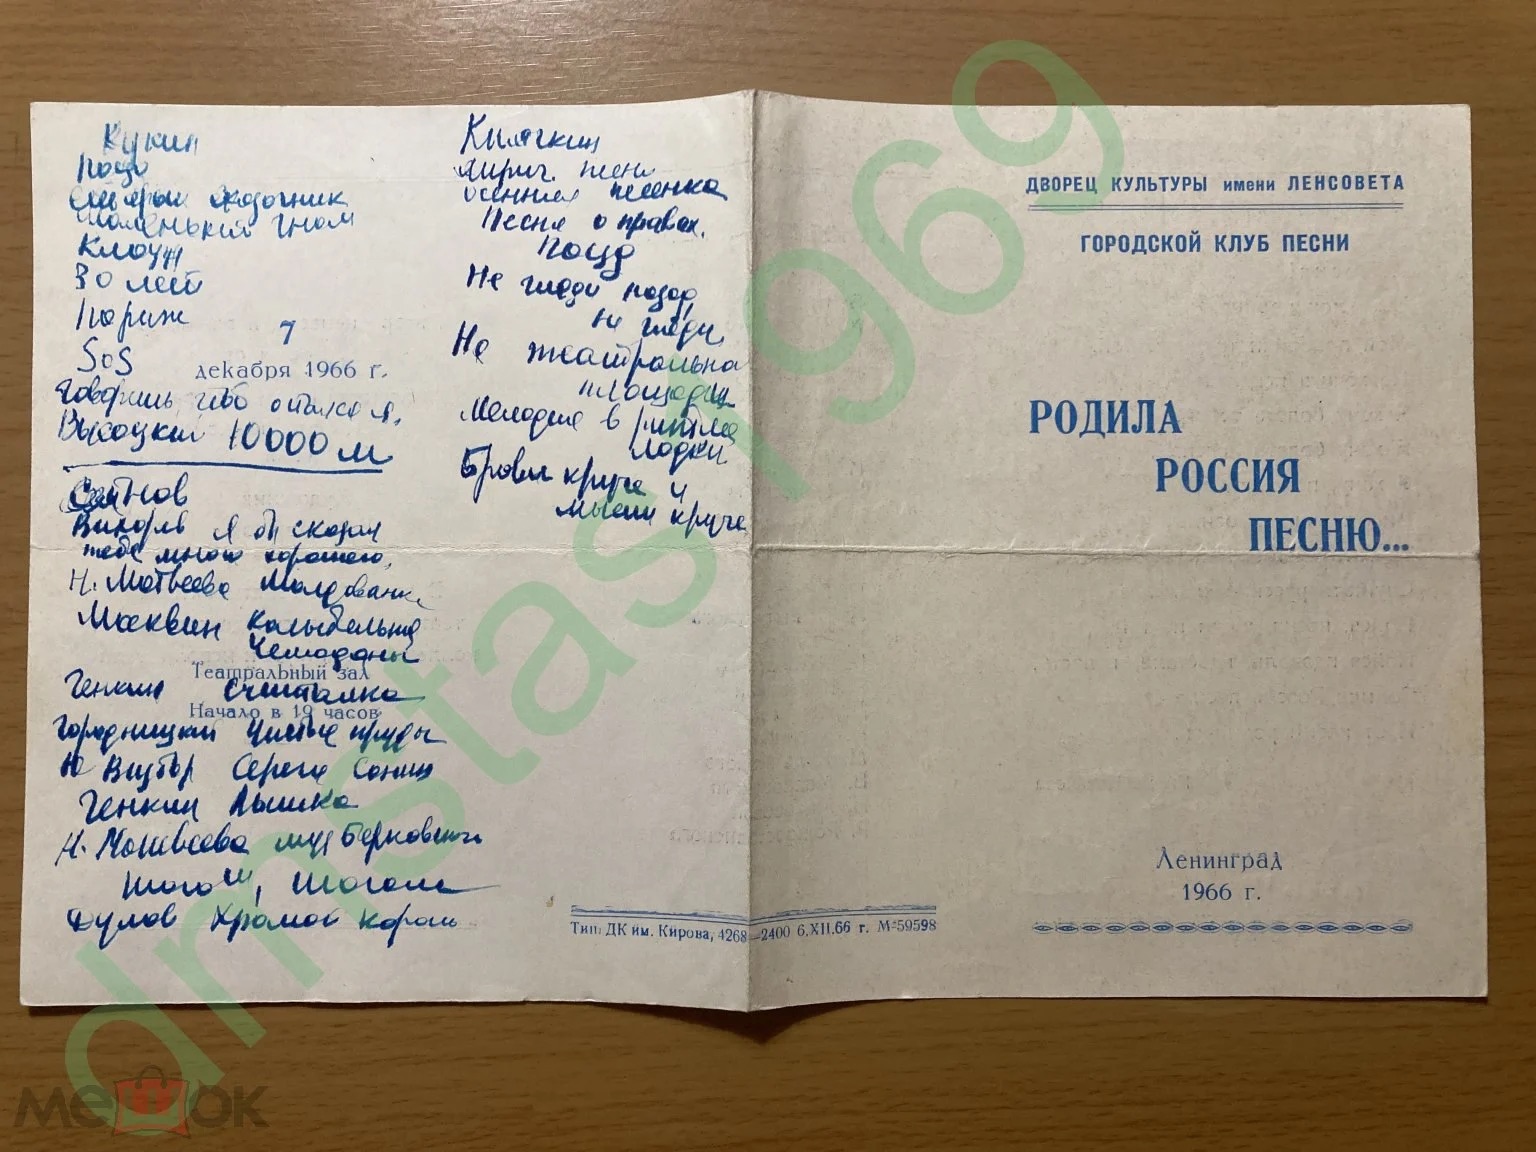 Кукин
Старый сказочник
Маленький гном
Клоун
30 лет
Париж
SOS
7
декабря 1966 г.
Говоришь, что остался я,
Высоцкий 10000 м
Вихорь Я бы сказал
тебе много хорошего,
Н. Матвеева Молдаване
Маквин Колыбельная
Чемоданы
Театральный зал
Генкин Считалка
Начало в 19 часов
Городницкий Чистые пруды
Ю Визбор Серега Санин
Генкин Мышка
Н. Матвеева муз Берковского
Дулов Хромой король
Клячкин
Лирич. песни
осенняя песенка
Песня о правах.
Не гляди назад,
не гляди,
На театральной
площади
Мелодия в ритме
лодки
Брови круче и
мысли круче
Тип. ДК им. Кирова, 4268—2400 6.XII.66 г. М-59598
ДВОРЕЦ КУЛЬТУРЫ имени ЛЕНСОВЕТА
ГОРОДСКОЙ КЛУБ ПЕСНИ
РОДИЛА
РОССИЯ
ПЕСНЮ...
Ленинград
1966 г.
dmstas1969
мешок